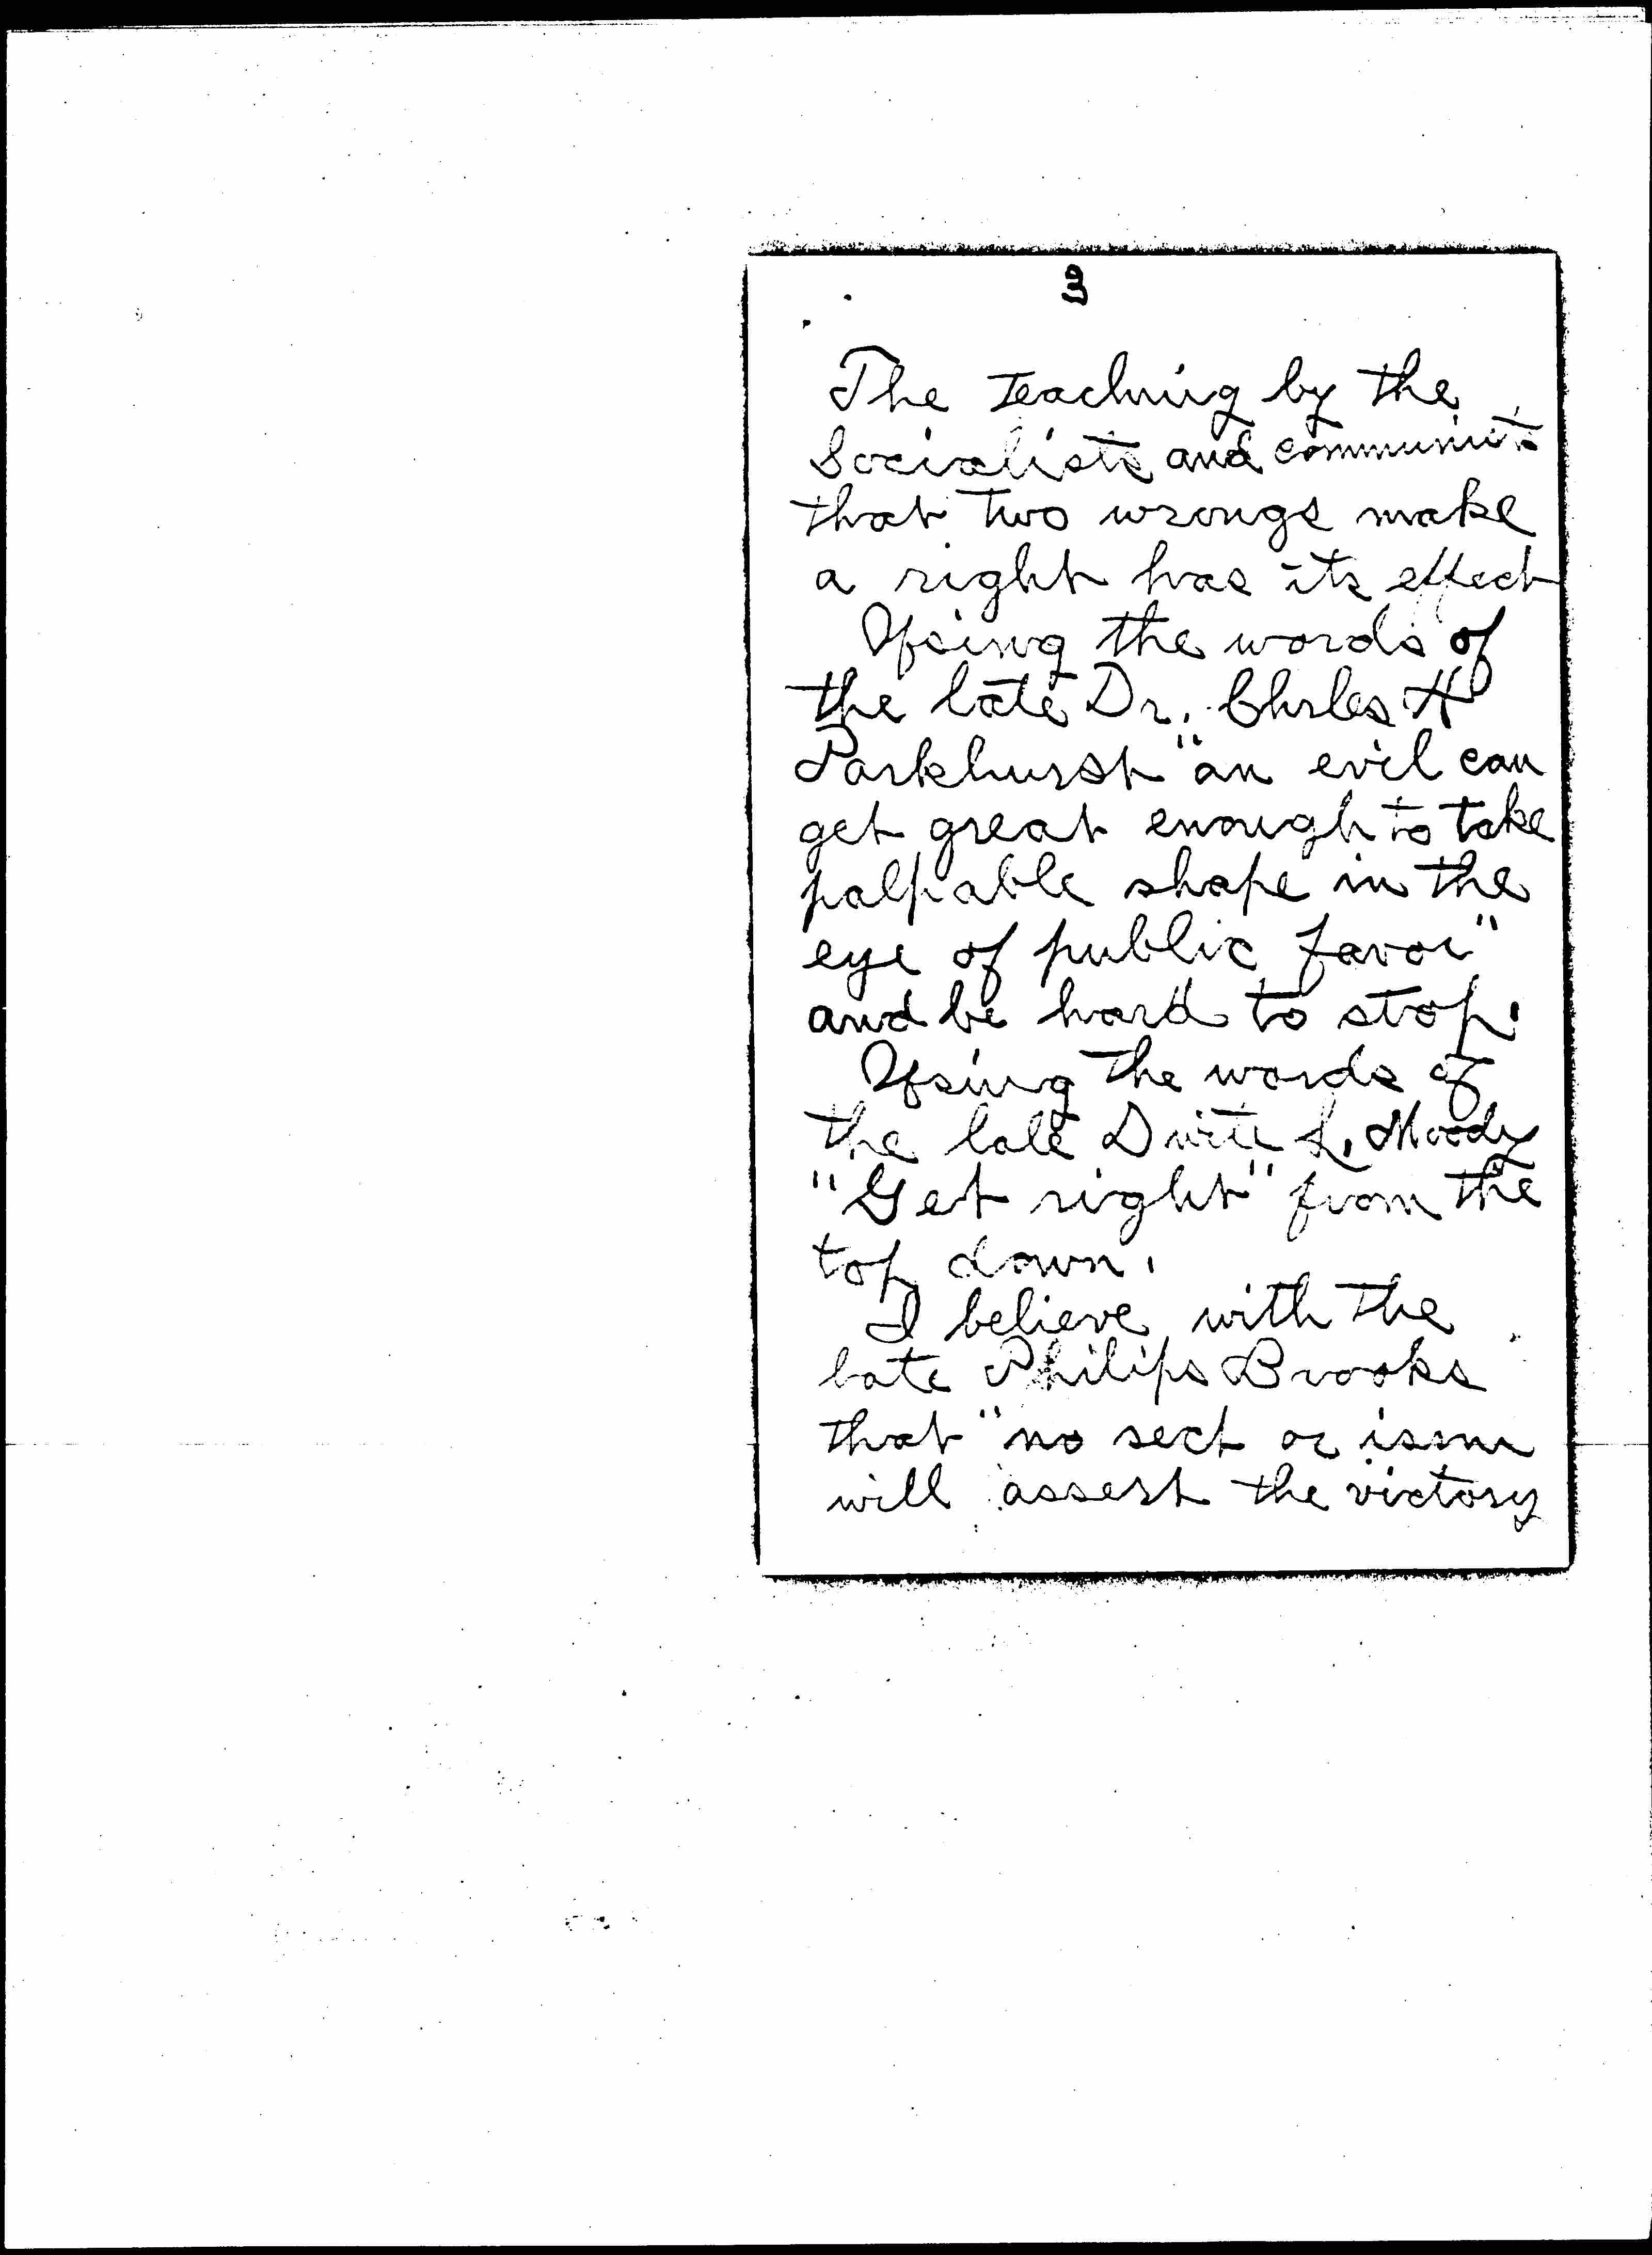 3
The teaching by the
Socialists and communists
that two wrongs make
a right has its effect
Using the words of
the late Dr. Chrles H
Parkhurst "an evil can
get great enough to take
palpable shape in the
eye of public favor"
and be hard to stop.
Using the words of
the late Dwite L. Moody
"Get right" from the
top down.
I believe with the
late Philips Brooks
that "no sect or ism
will assert the victory